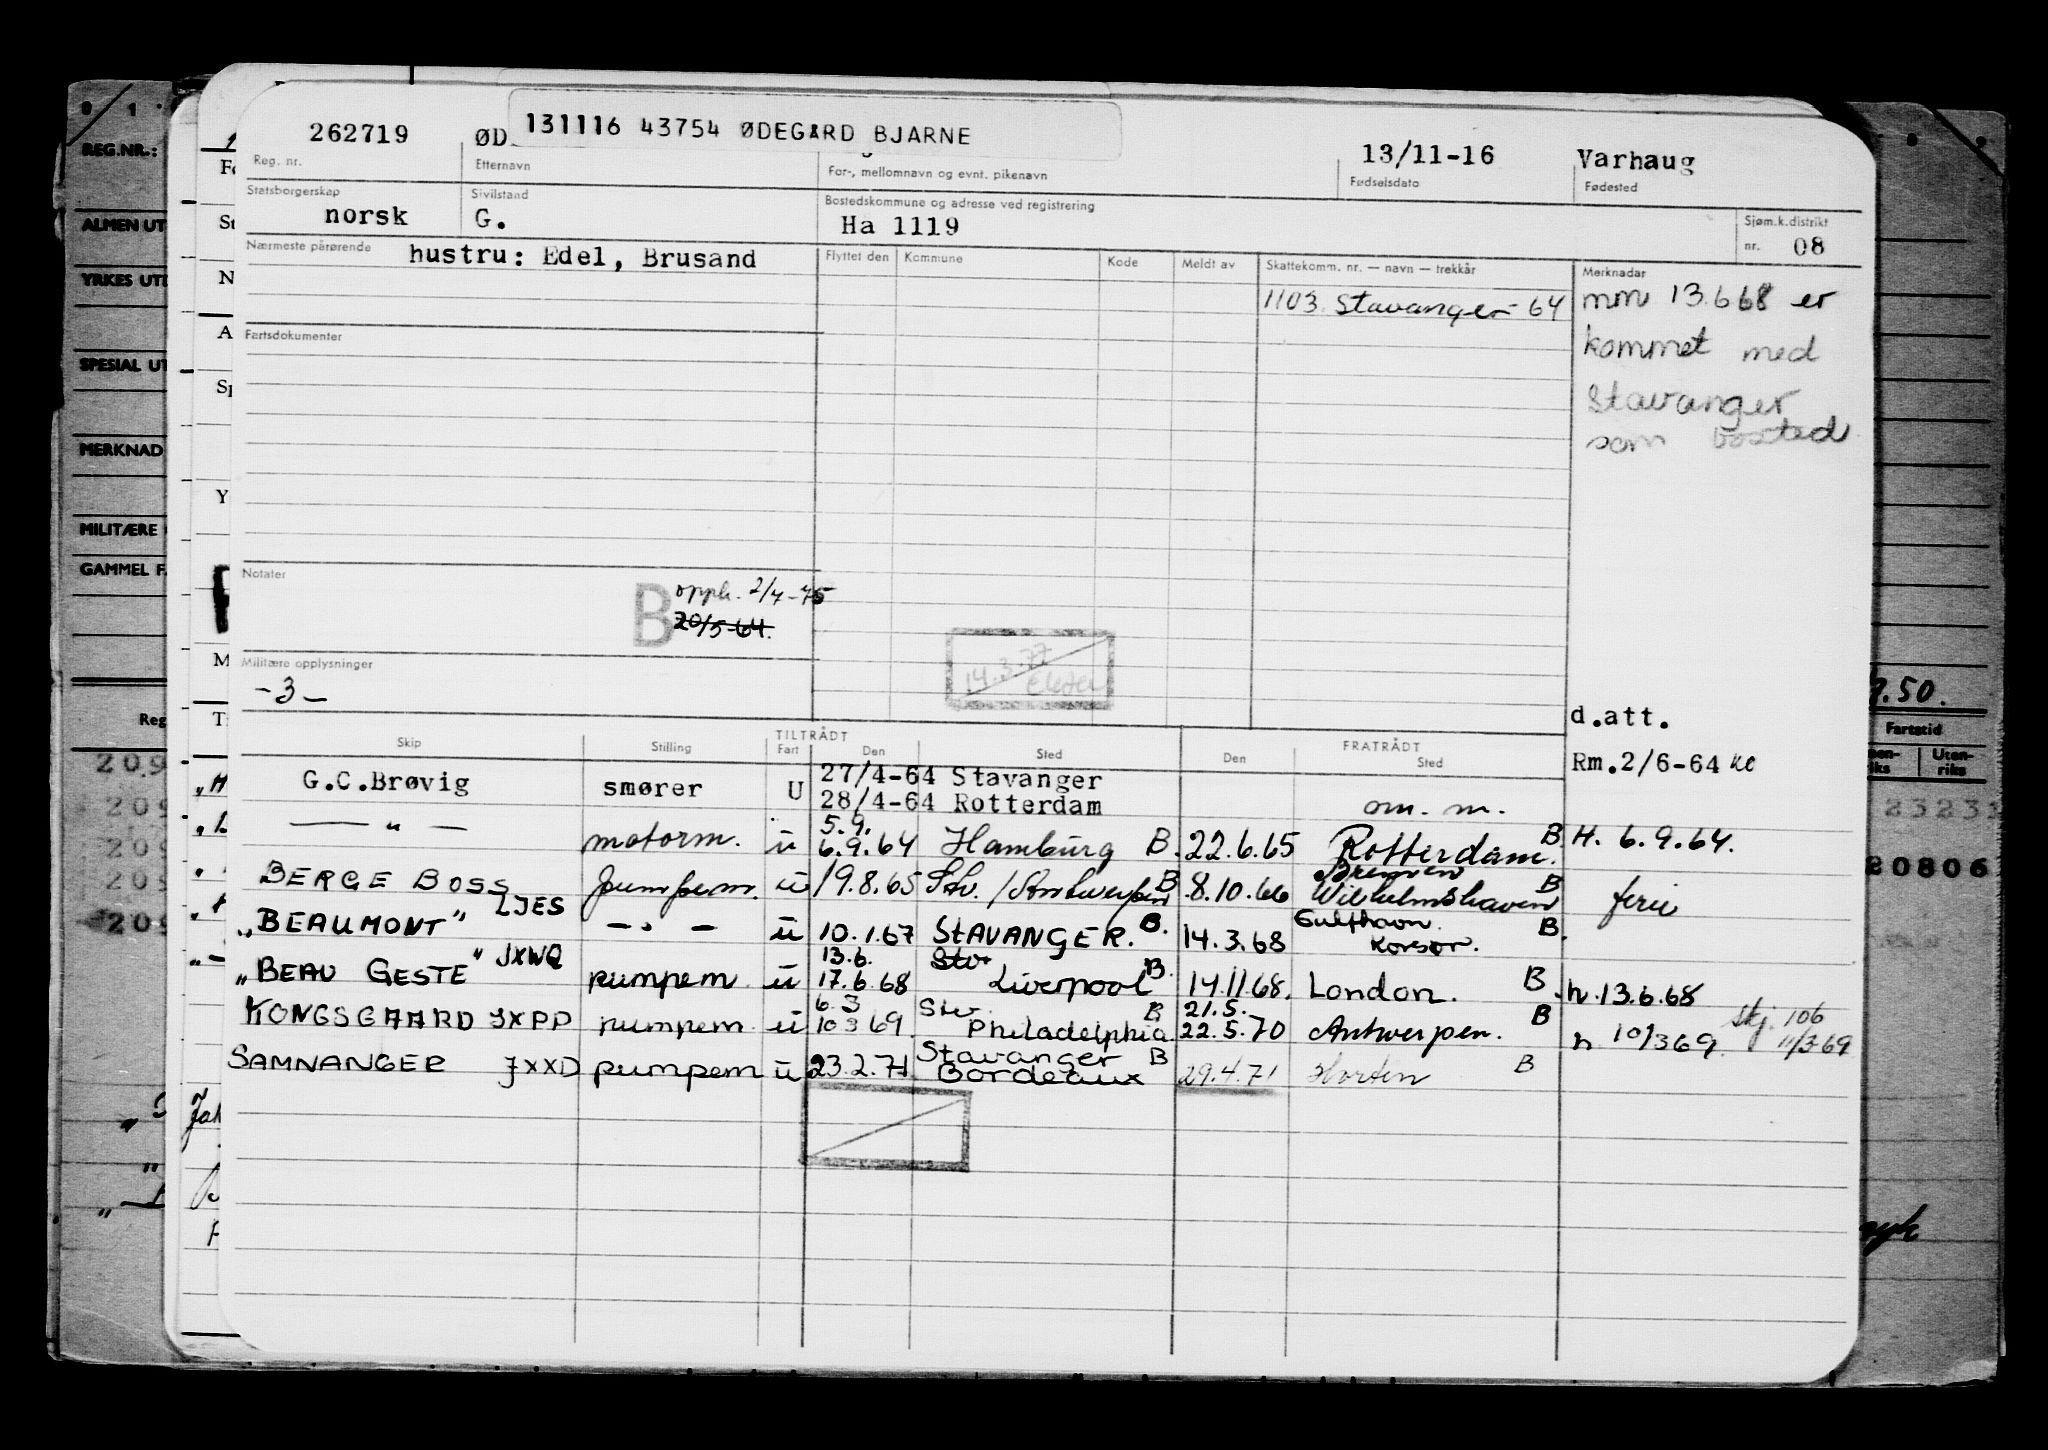 131116 43754 ØDEGARD BJARNE
262719 ØD
13/11-16 Varhaug
Reg. nr. Etternavn For-, mellomnavn og evnt. pikenavn Fødselsdato Fødested
Statsborgerskap Sivilstand Bostedskommune og adresse ved registrering Sjøm.k.distrikt
norsk G. Ha 1119 nr. 08
Nærmeste pårørende hustru: Edel, Brusand
Flyttet den Kommune Kode Meldt av Skattekomm. nr. — navn — trekkår Merknader
1103 Stavanger - 64
mm 13.6 68 er
kommet med
Stavanger
som bosted
Fartsdokumenter
Notater
B opph. 2/4-75
20/5-64.
14.3.77
Militære opplysninger
-3-
d.att.
TILTRÅDT FRATRÅDT
Skip Stilling Fart Den Sted Den Sted
Rm.2/6-64
G.C.Brøvig smører U 27/4-64 Stavanger
28/4-64 Rotterdam om. m.
— " — motorm. u 5.9. 6.9.64 Hamburg B. 22.6.65 Rotterdam. B H. 6.9.64.
BERGE BOSS LJES pumpem. u 19.8.65 Stv. / Antwerpen B 8.10.66 Bremen Wilhelmshaven B ferie
"BEAUMONT" — " — u 10.1.67 STAVANGER. B. 14.3.68 Gulfhavn. Korsør. B.
"BEAU GESTE" JXWQ pumpem u 13.6. 17.6.68 Stv Liverpool B. 14.11 68. London. B h. 13.6.68
KONGSGAARD JXPP pumpem u 6.3 10 3 69. Stv. Philadelphia B 21.5. 22.5.70 Antwerpen. B h 10/3 69. skj. 106 11/3 69
SAMNANGER JXXD pumpem u 23.2.71 Stavanger Bordeaux B 29.4.71 Horten B
REG.NR.:
ALMEN UT
YRKES UTD
SPESIAL UT
MERKNAD
MILITÆRE
GAMMEL F
Reg
209
209
209
209
209
.50.
Fartstid
Uten-
riks
23231
20806